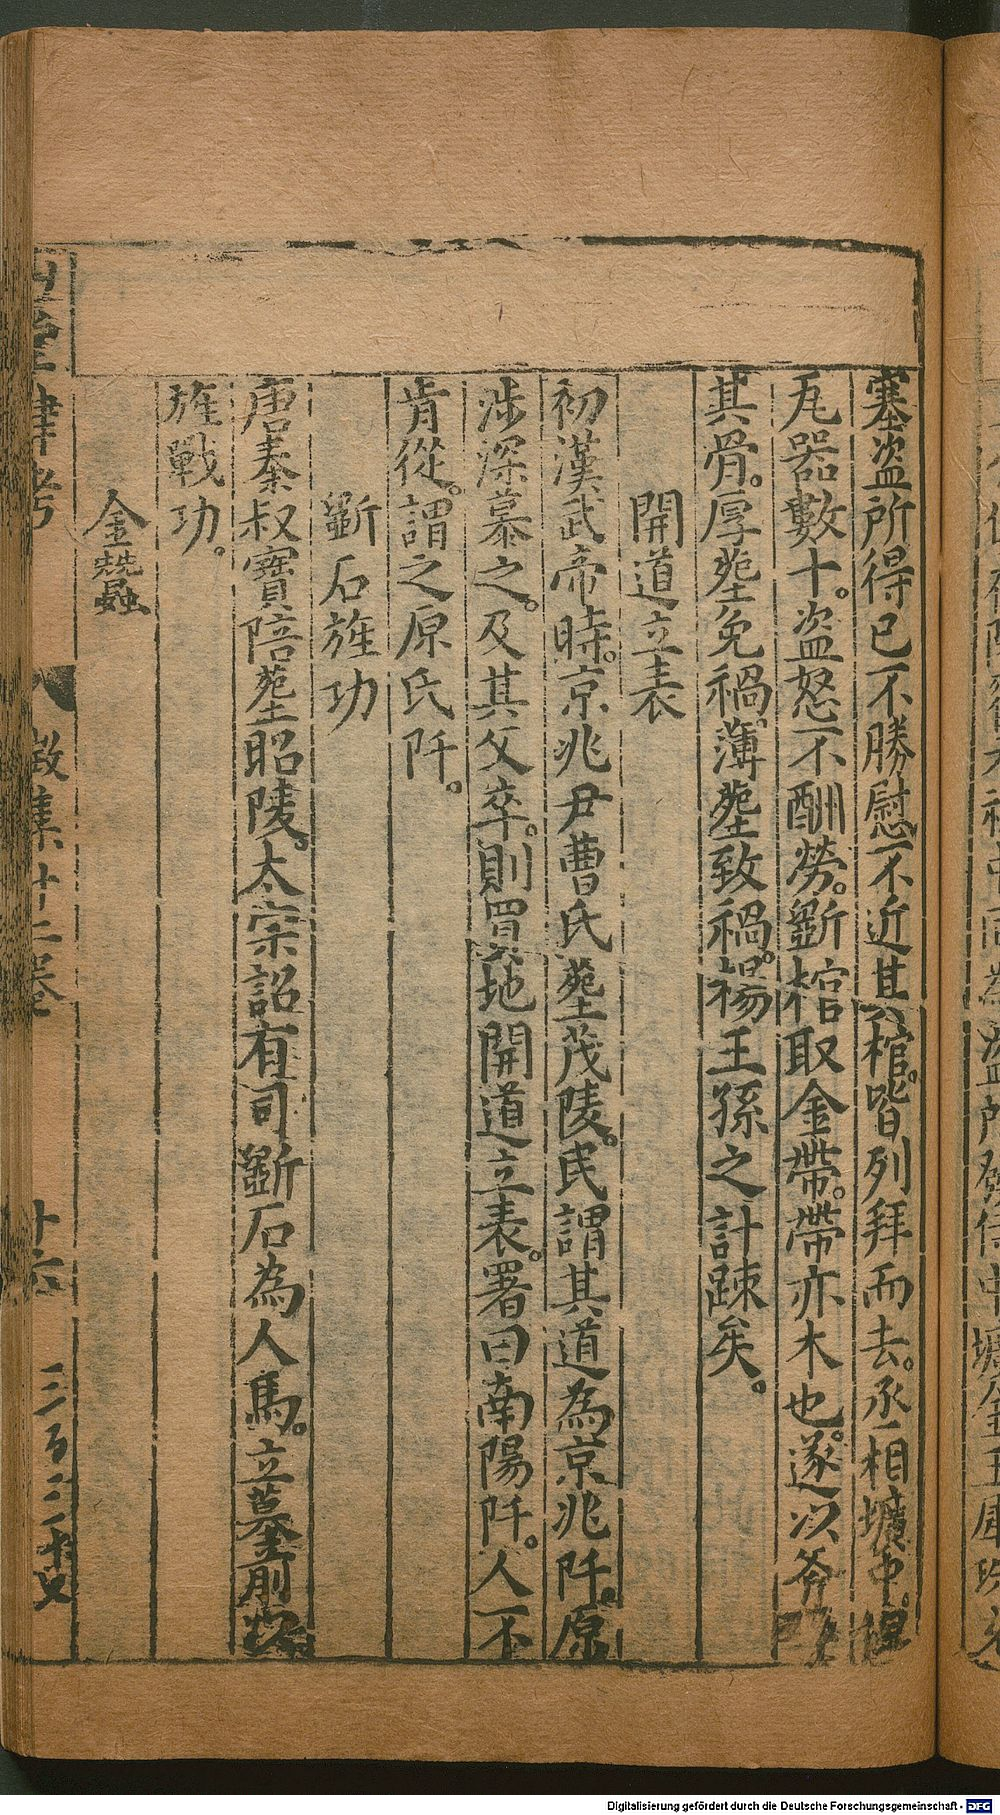 塞盜所得已不勝慰不近其棺皆列拜而去丞相壙中
瓦器數十盜怒不酬勞斲棺取金帶帶亦木也遂以斧
其骨厚塟免禍薄塟致禍楊王孫之計踈矣
開道立表
初漢武帝時京兆尹曹氏塟茂陵民謂其道為京兆阡原
涉深慕之及其父卒則買地開道立表署曰南陽阡人不
肯從謂之原氏阡
斲石旌功
唐秦叔寶陪塟昭陵太宗詔有司斲石為人馬立墓前以
旌戰功
金蠶
十六
三百三十七
Digitalisierung gefördert durch die Deutsche Forschungsgemeinschaft - DFG